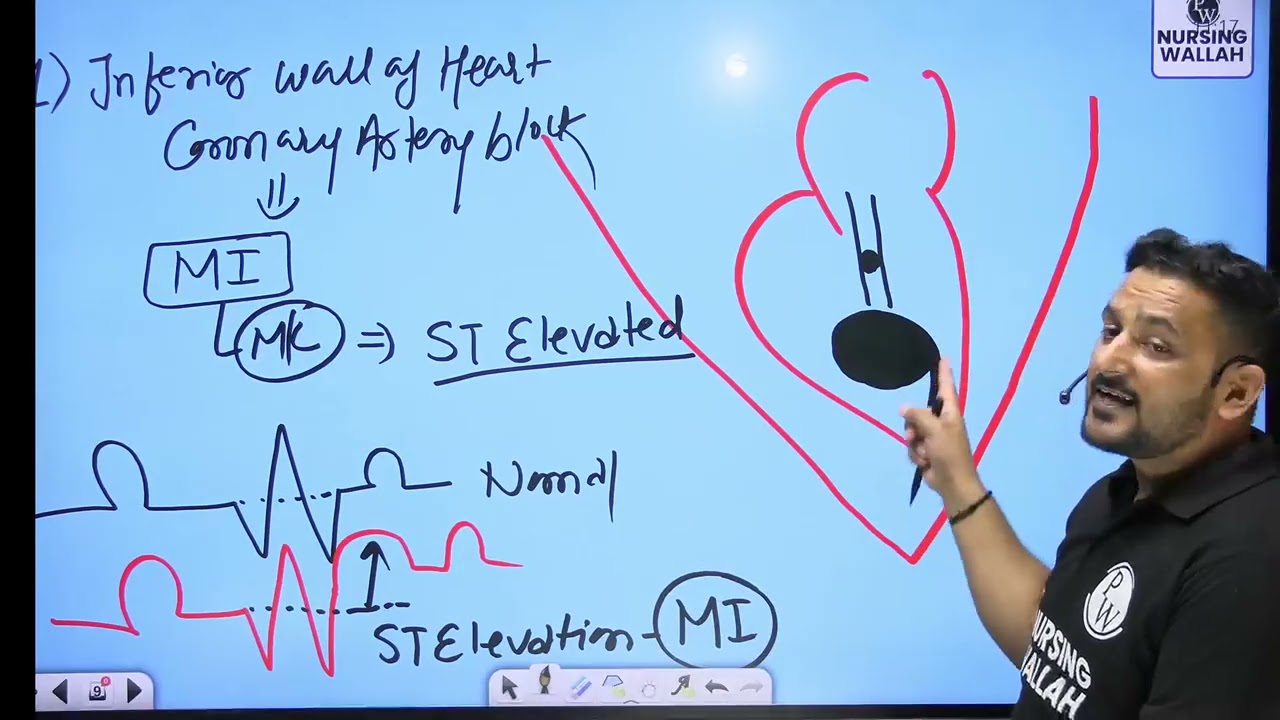 1) Inferior wall of Heart
Coronary Artery block
MI
MK ⇒ ST Elevated
Normal
ST Elevation - MI
PW
NURSING
WALLAH
PW
NURSING
WALLAH
9